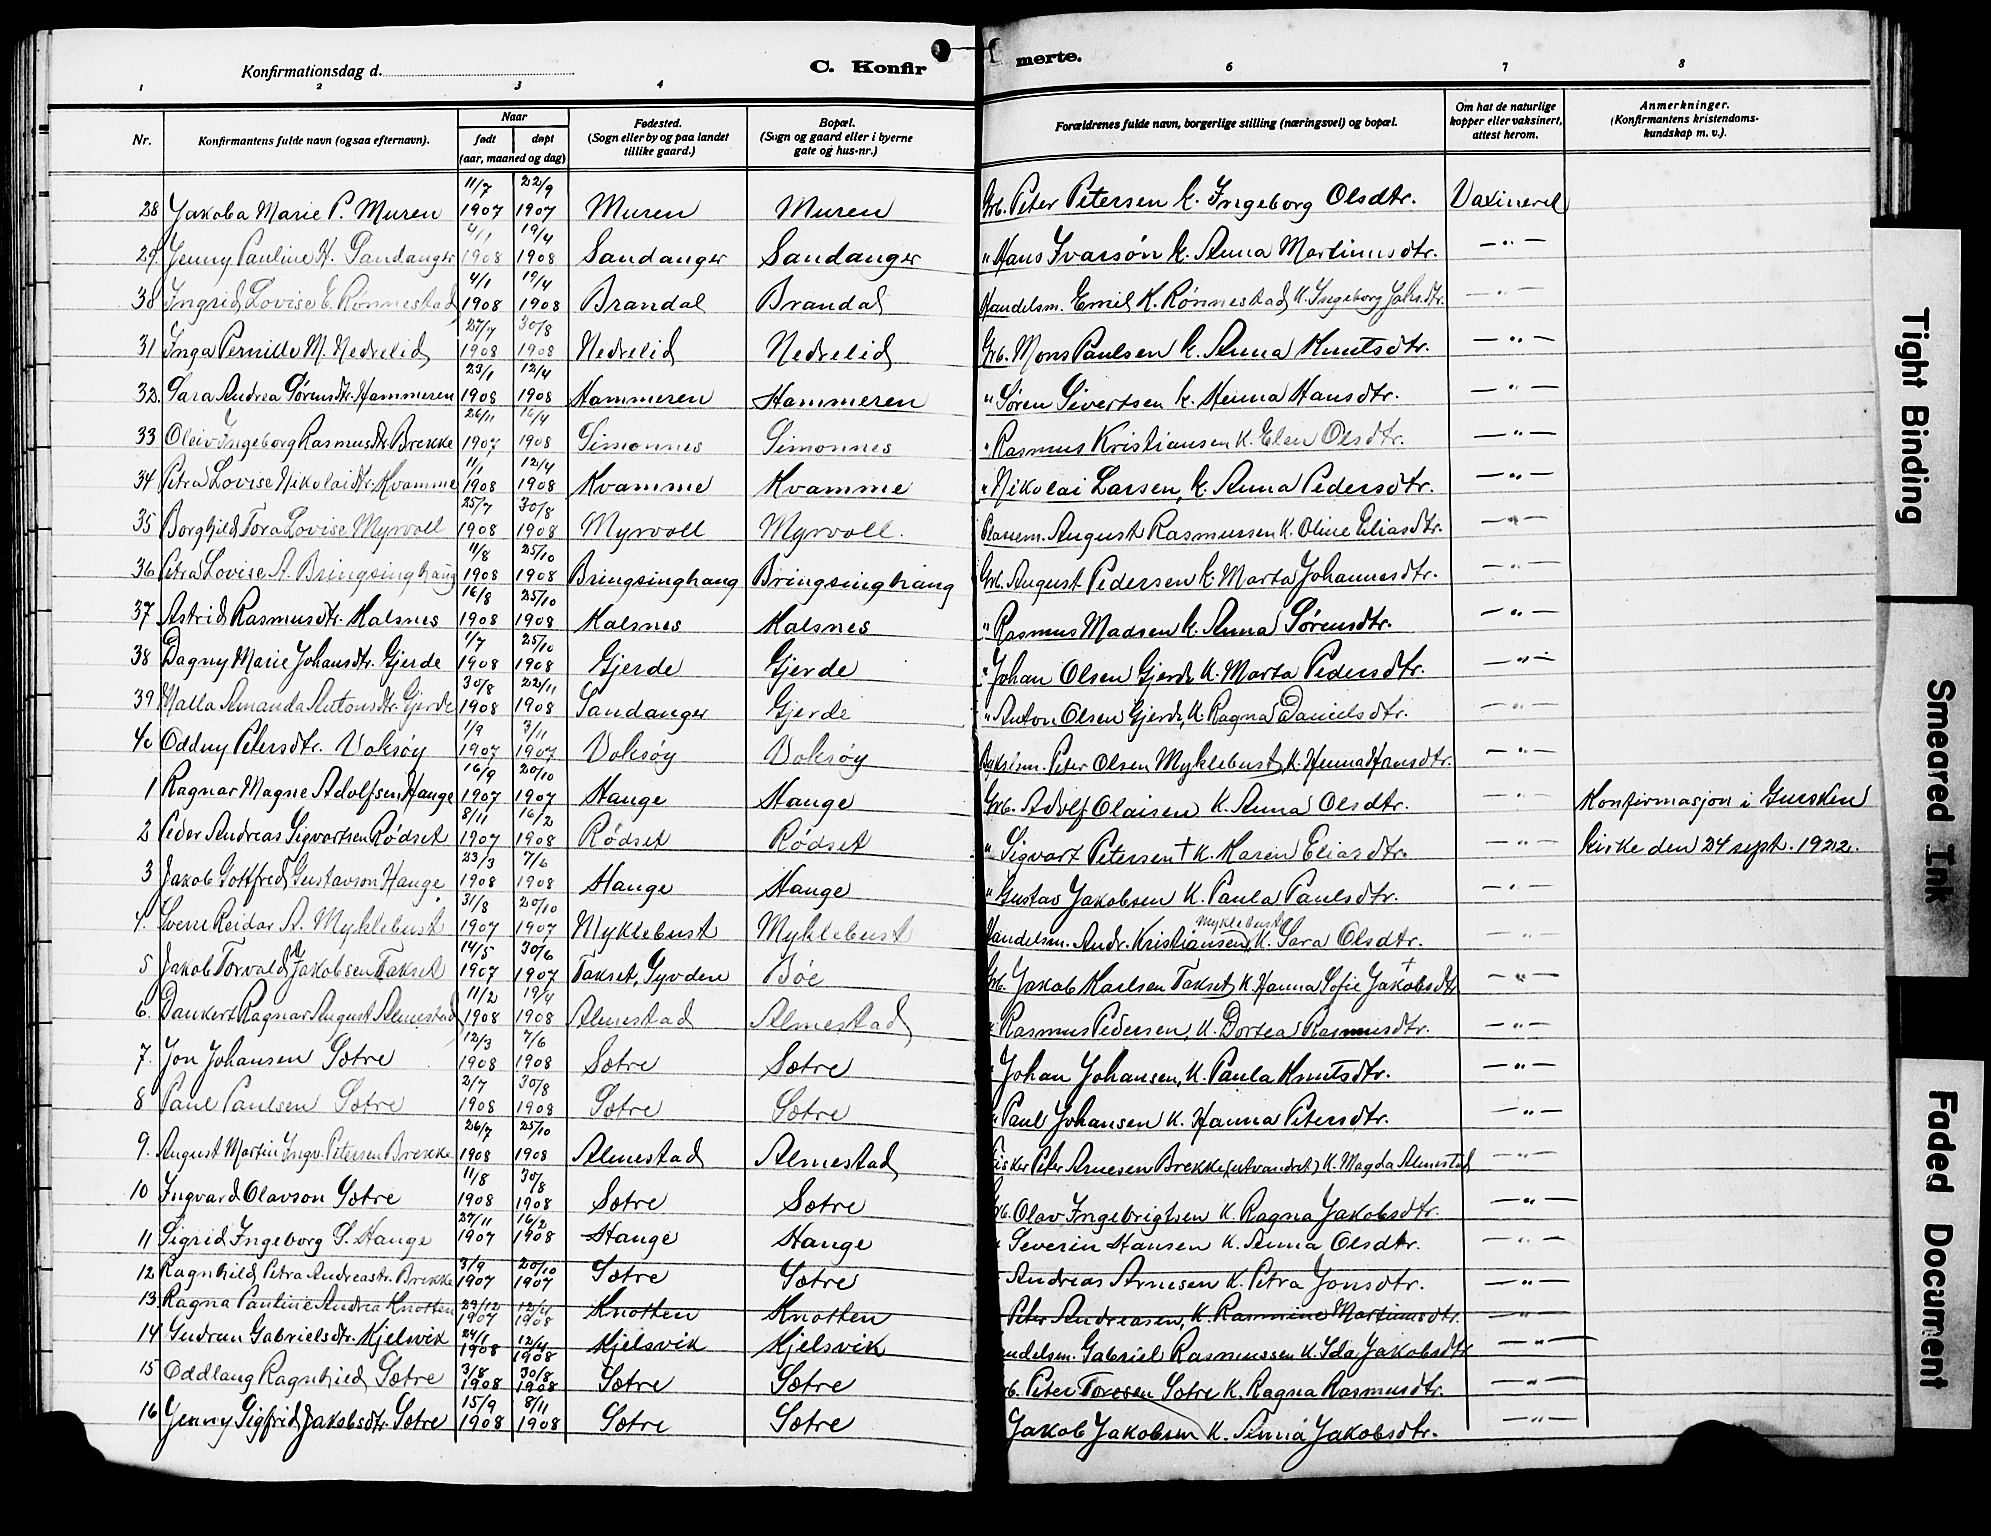 Konfirmationsdag d.
C. Konfir merte.
1 2 3 4 5 6 7 8
Nr. Konfirmantens fulde navn (ogsaa efternavn). Naar født døpt (aar, maaned og dag) Fødested. (Sogn eller by og paa landet tillike gaard.) Bopæl. (Sogn og gaard eller i byerne gate og hus-nr.) Forældrenes fulde navn, borgerlige stilling (næringsvei) og bopæl. Om hat de naturlige kopper eller vaksinert, attest herom. Anmerkninger. (Konfirmantens kristendoms-kundskap m. v.).
28 Jakoba Marie P. Muren 11/7 1907 22/9 1907 Muren Muren Grb. Peter Petersen k. Ingeborg Olsdtr. Vaxinerel
29. Jenny Pauline H. Sandanger 4/1 1908 19/4 1908 Sandanger Sandanger " Hans Ivarsøn k. Anna Martinusdtr. —"—
30 Ingrid Lovise E. Rønnestad 4/1 1908 19/4 1908 Brandal Brandal Handelsm. Emil K. Rønnestad K. Ingeborg Johsdtr. —"—
31 Inga Pernille M. Nedrelid 27/7 1908 30/8 1908 Nedrelid Nedrelid Grb. Mons Paulsen k. Anna Knutsdtr. —"—
32. Sara Andrea Sørensdtr. Hammeren 23/1 1908 12/4 1908 Hammeren Hammeren " Søren Sivertsen k. Henna Hansdtr. —"—
33 Oleiv Ingeborg Rasmusdtr Brekke 26/11 1907 16/4 1908 Simonnes Simonnes " Rasmus Kristiansen K. Elen Olsdtr. —"—
34 Petra Lovise Nikolaidtr. Kvamme 11/1 1908 12/4 1908 Kvamme Kvamme " Nikolai Larsen, k. Anna Pedersdtr. —"—
35 Borghild Tora Lovise Myrvoll 25/7 1908 30/8 1908 Myrvoll Myrvoll. August Rasmussen K. Oline Eliasdtr. —"—
36 Petra Lovise A. Bringsinghaug 11/8 1908 25/10 1908 Bringsinghaug Bringsinghaug Grb. August Pedersen k. Marta Johannesdtr. —"—
37 Astrid Rasmusdtr. Halsnes 16/8 1908 25/10 1908 Halsnes Halsnes " Rasmus Madsen k. Anna Sørensdtr. —"—
38 Dagny Marie Johansdtr. Gjerde 1/7 1908 25/10 1908 Gjerde Gjerde " Johan Olsen Gjerde K. Marta Pedersdtr. —"—
39 Malla Amanda Antonsdtr. Gjerde 30/8 1908 22/11 1908 Sandanger Gjerde " Anton Olsen Gjerde, K. Ragna Danielsdtr. —"—
40 Oddny Petersdtr. Voksøy 1/9 1907 3/11 1907 Voksøy Voksøy Peter Olsen Myklebust, K. Henna Hansdtr. —"—
1 Ragnar Magne Adolfsen Hauge 16/9 1907 20/10 1907 Hauge Hauge Grb. Adolf Olaisen K. Anna Olsdtr. —"— Konfirmasjon i Gursken
2 Peder Andreas Sigvartsen Rødset 8/11 1907 16/2 1908 Rødset Rødset " Sigvart Petersen † K. Maren Eliasdtr. —"— kirke den 24 sept. 1922.
3 Jakob Gottfred Gustavson Hauge 23/3 1908 7/6 1908 Hauge Hauge " Gustav Jakobsen K. Paula Paulsdtr. —"—
4. Sverre Reidar A. Myklebust 31/8 1907 20/10 1907 Myklebust Myklebust Handelsm. Andr. Kristiansen Myklebust, K. Sara Olsdtr. —"—
5 Jakob Torvald Jakobsen Takset 14/5 1907 30/6 1907 Takset, Syvden Böe Grb. Jakob Karlsen Takset K. Hanna Sofie Jakobsdtr † —"—
6. Dankert Ragnar August Almestad 11/2 1908 19/4 1908 Almestad Almestad " Rasmus Pedersen, K. Dortea Rasmusdtr. —"—
7. Jon Johansen Sætre 12/3 1908 7/6 1908 Sætre Sætre " Johan Johansen, K. Paula Knutsdtr. —"—
8 Paul Paulsen Sætre 2/7 1908 30/8 1908 Sætre Sætre " Paul Johansen K. Hanna Petersdtr. —"—
9. August Martin Ingv. Petersen Brekke 26/7 1908 25/10 1908 Almestad Almestad Fisker Peter Arnesen Brekke (utvandret) K. Magda Almestad —"—
10 Ingvard Olavson Sætre 11/8 1908 30/8 1908 Sætre Sætre Grb. Olav Ingebrigtsen K. Ragna Jakobsdtr. —"—
11 Sigrid Ingeborg S. Hauge 27/11 1907 16/2 1908 Hauge Hauge " Severin Hansen K. Anna Olsdtr. —"—
12 Ragnhild Petra Andreasdtr. Brekke 3/9 1907 20/10 1907 Sætre Sætre Andreas Arnesen K. Petra Jonsdtr. —"—
13. Ragna Pauline Andrea Knotten 29/12 1907 12/4 1908 Knotten Knotten Peter Andreasen, K. Rasmine Martinusdtr. —"—
14 Gudrun Gabrielsdtr. Kjelsvik 24/1 1908 12/4 1908 Kjelsvik Kjelsvik Handelsm. Gabriel Rasmussen K. Ida Jakobsdtr —"—
15 Oddlaug Ragnhild Sætre 3/8 1908 30/8 1908 Sætre Sætre Grb. Peter Toresen Sætre K. Ragna Rasmusdtr. —"—
16 Jenny Sigfrid Jakobsdtr. Sætre 15/9 1908 8/11 1908 Sætre Sætre Jakob Jakobsen K. Jakobsdtr. —"—
Tight Binding
Smeared Ink
Faded Document